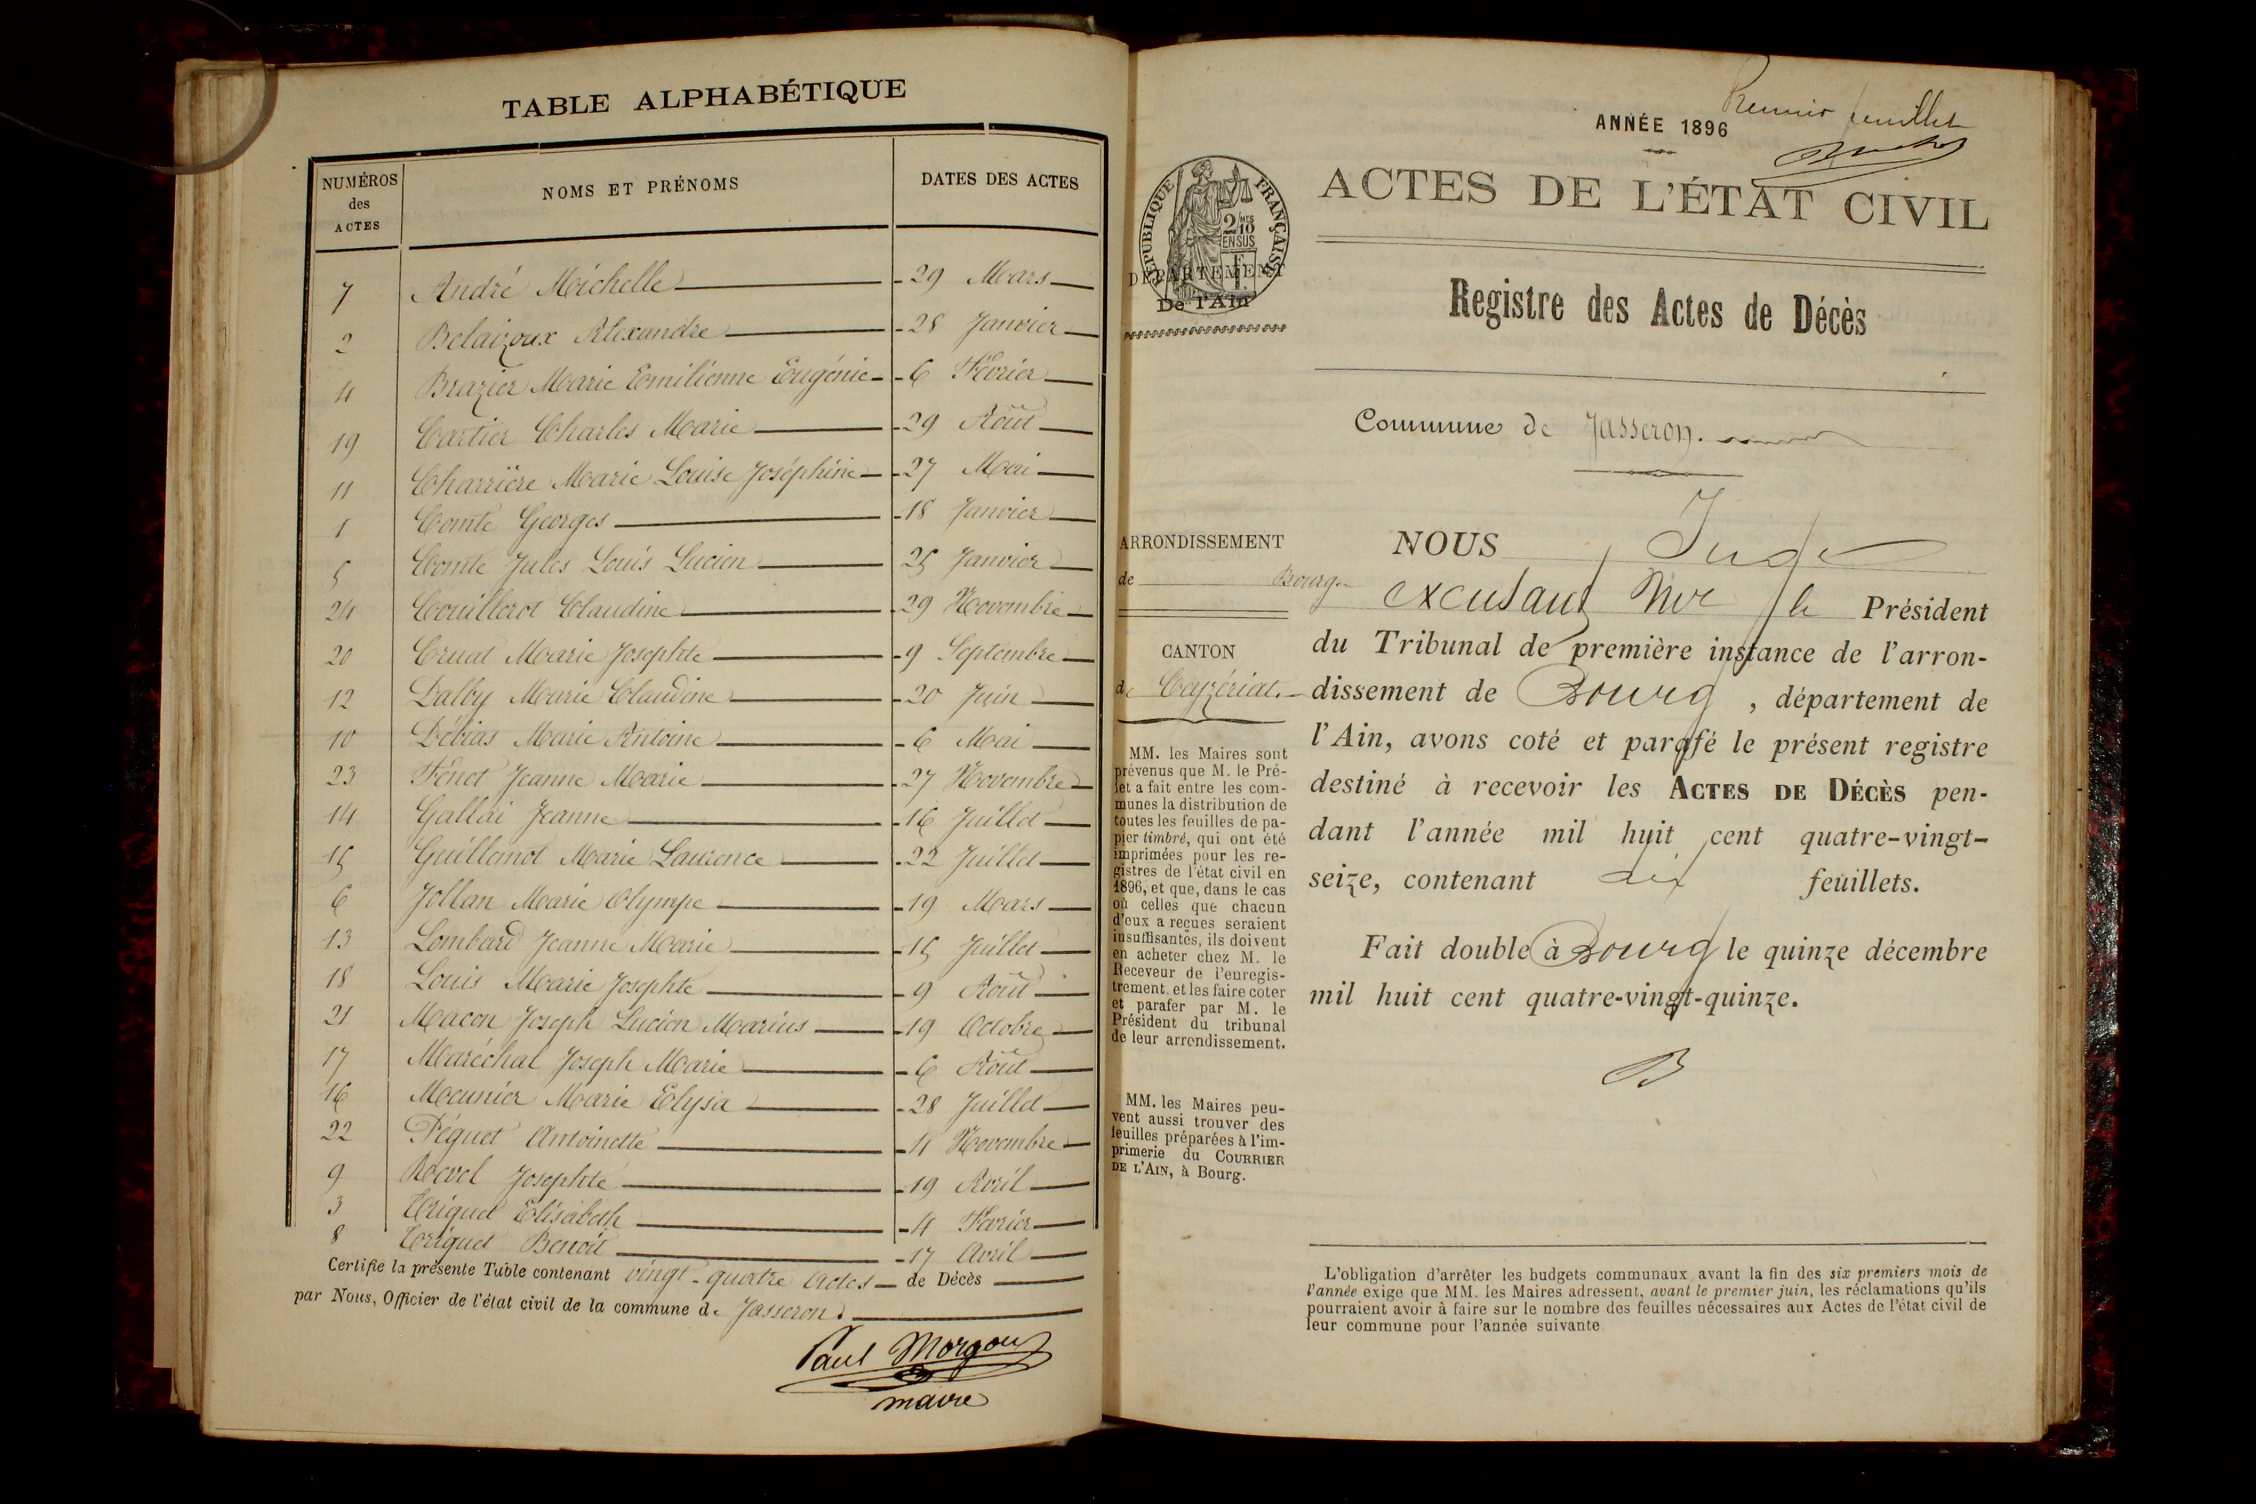 TABLE ALPHABÉTIQUE
NUMÉROS des ACTES
NOMS ET PRÉNOMS
DATES DES ACTES
7 André Michelle 29 Mars
2 Belaizoux Alexandre 28 Janvier
4 Brazier Marie Emilienne Eugénie 6 Février
19 Cartier Charles Marie 29 Août
11 Charrière Marie Louise Joséphine 27 Mai
1 Comte Georges 18 Janvier
5 Comte Jules Louis Lucien 25 Janvier
24 Couillerot Claudine 29 Novembre
20 Cruat Marie Josephte 9 Septembre
12 Dalby Marie Claudine 20 Juin
10 Débias Marie Antoine 6 Mai
23 Fénet Jeanne Marie 27 Novembre
14 Gallai Jeanne 16 Juillet
15 Guillemot Marie Laurence 22 Juillet
6 Jollan Marie Olympe 19 Mars
13 Lombard Jeanne Marie 15 Juillet
18 Louis Marie Josephte 9 Août
21 Macon Joseph Lucien Marius 19 Octobre
17 Maréchal Joseph Marie 6 Août
16 Meunier Marie Elysa 28 Juillet
22 Péguet Antoinette 4 Novembre
9 Revol Josephte 19 Avril
3 Triquet Elisabeth 4 Février
8 Triquet Benoit 17 Avril
Certifie la présente Table contenant vingt-quatre actes de Décès
par Nous, Officier de l'état civil de la commune de Jasseron.
Paul Morgon
maire
Premier feuillet
ANNÉE 1896
ACTES DE L'ÉTAT CIVIL
RÉPUBLIQUE FRANÇAISE
DÉPARTEMENT
De l'Ain
Registre des Actes de Décès
Commune de Jasseron.
ARRONDISSEMENT
de Bourg
CANTON
de Ceyzériat.
MM. les Maires sont
prévenus que M. le Pré-
fet a fait entre les com-
munes la distribution de
toutes les feuilles de pa-
pier timbré, qui ont été
imprimées pour les re-
gistres de l'état civil en
1896, et que, dans le cas
où celles que chacun
d'eux a reçues seraient
insuffisantes, ils doivent
en acheter chez M. le
Receveur de l'enregis-
trement et les faire coter
et parafer par M. le
Président du tribunal
de leur arrondissement.
MM. les Maires peu-
vent aussi trouver des
feuilles préparées à l'im-
primerie du COURRIER
DE L'AIN, à Bourg.
NOUS Juge
excusant Mr le Président
du Tribunal de première instance de l'arron-
dissement de Bourg, département de
l'Ain, avons coté et parafé le présent registre
destiné à recevoir les ACTES DE DÉCÈS pen-
dant l'année mil huit cent quatre-vingt-
seize, contenant dix feuillets.
Fait double à Bourg le quinze décembre
mil huit cent quatre-vingt-quinze.
B
L'obligation d'arrêter les budgets communaux avant la fin des six premiers mois de
l'année exige que MM. les Maires adressent, avant le premier juin, les réclamations qu'ils
pourraient avoir à faire sur le nombre des feuilles nécessaires aux Actes de l'état civil de
leur commune pour l'année suivante.